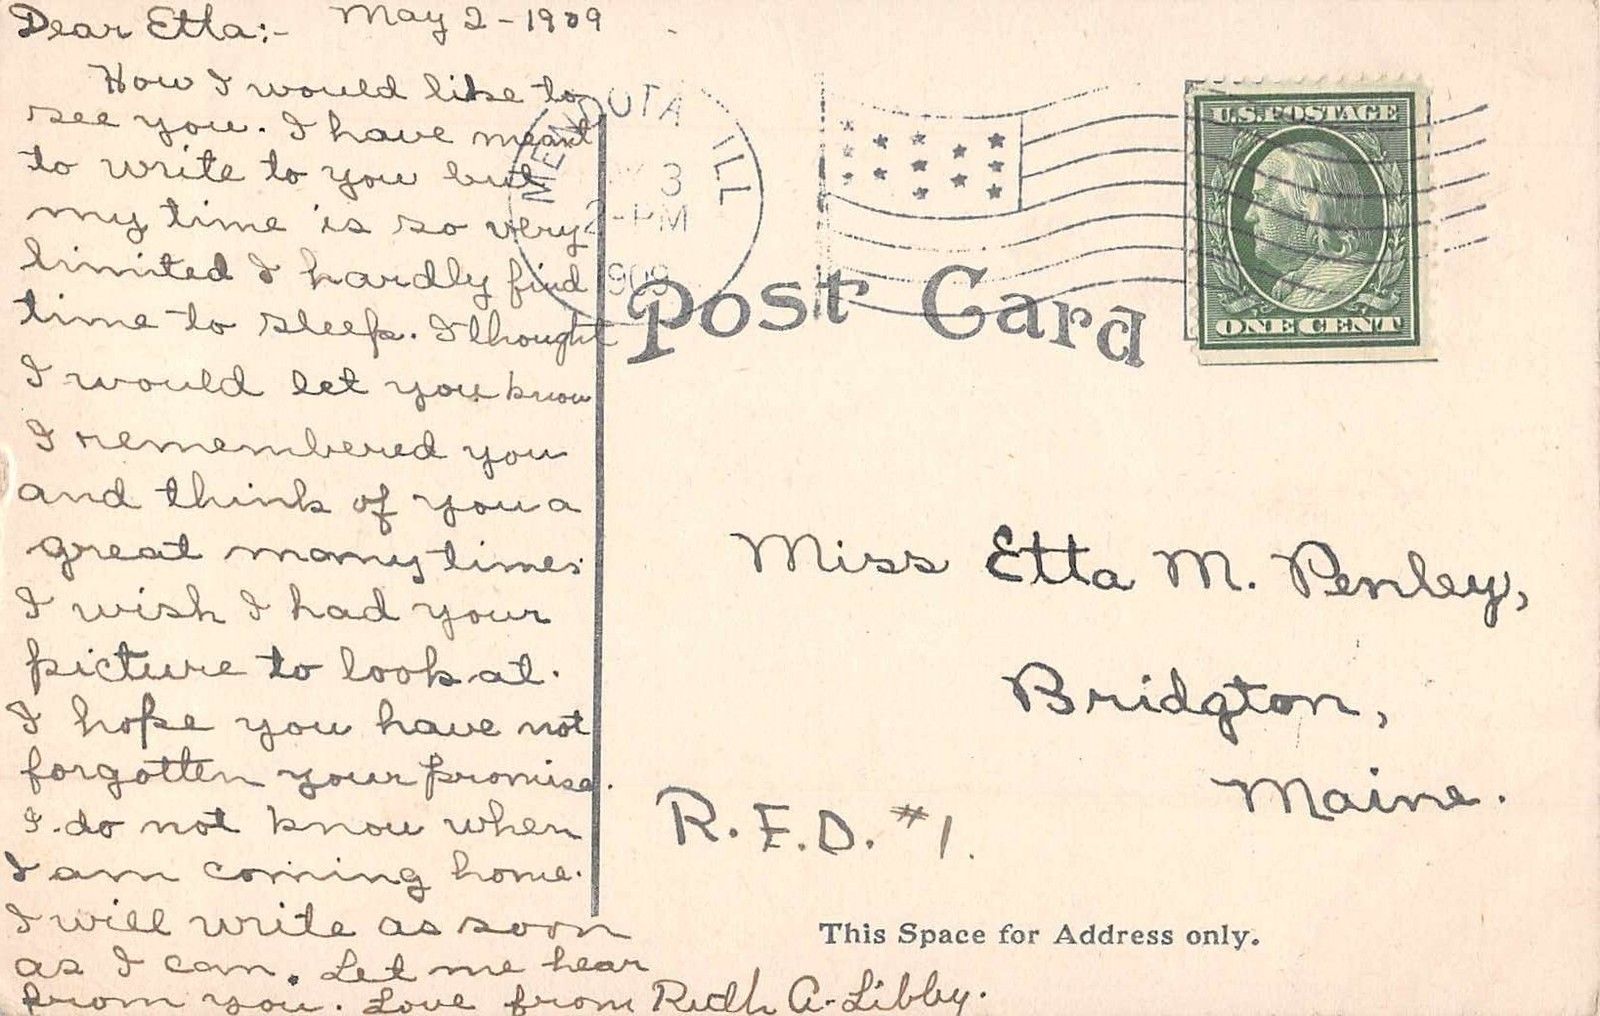 Dear Etta:- May 2-1909
How I would like to
see you. I have meant
to write to you but
my time is so very
limited I hardly find
time to sleep. I thought
I would let you know
I remembered you
and think of you a
great many times
I wish I had your
picture to look at.
I hope you have not
forgotten your promise.
I do not know when
I am coming home.
I will write as soon
as I can. Let me hear
from you. Love from Ruth A. Libby.
MENDOTA ILL
3
2-PM
1909
U.S. POSTAGE
ONE CENT
Post Card
Miss Etta M. Penley,
Bridgton,
Maine.
R.F.D. #1.
This Space for Address only.